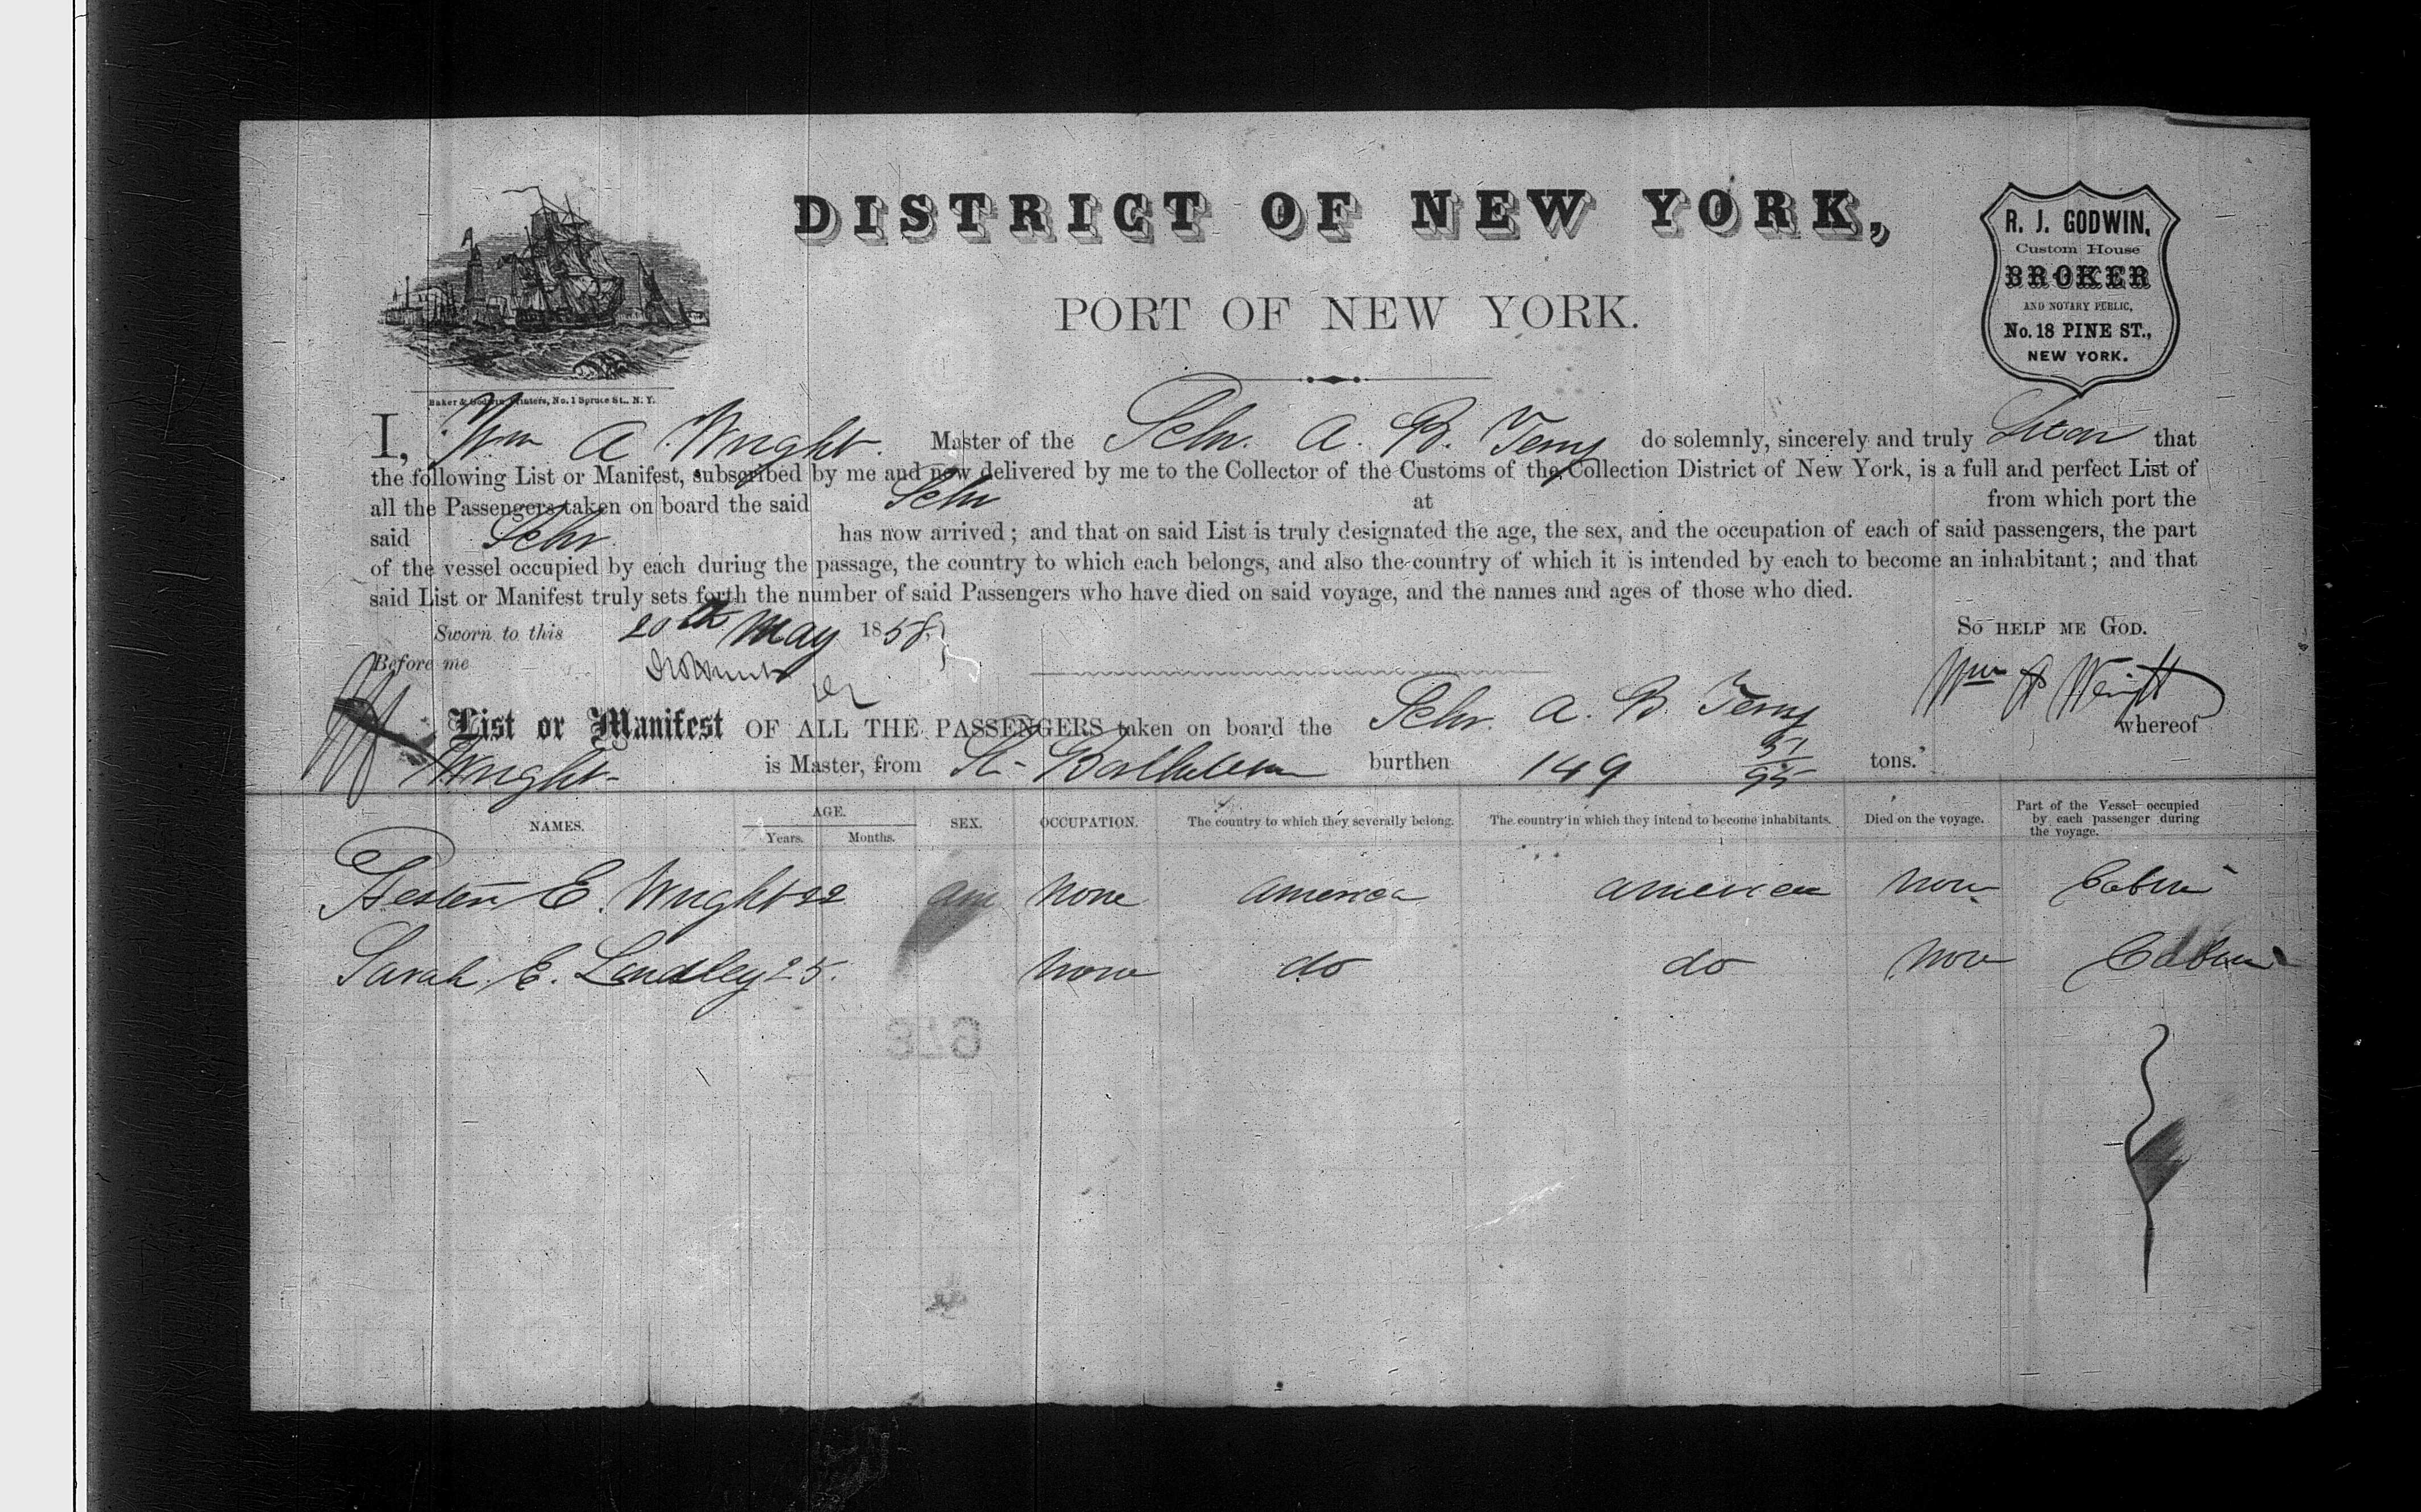 DISTRICT OF NEW YORK,
PORT OF NEW YORK.
R. J. GODWIN,
Custom House
BROKER
AND NOTARY PUBLIC,
No. 18 PINE ST.,
NEW YORK.
Baker & Godwin, Printers, No. 1 Spruce St., N. Y.
I, Wm A Wright. Master of the Schr. A. B. Terry do solemnly, sincerely and truly Swear that
the following List or Manifest, subscribed by me and now delivered by me to the Collector of the Customs of the Collection District of New York, is a full and perfect List of
all the Passengers taken on board the said Schr at from which port the
said Schr. has now arrived; and that on said List is truly designated the age, the sex, and the occupation of each of said passengers, the part
of the vessel occupied by each during the passage, the country to which each belongs, and also the country of which it is intended by each to become an inhabitant; and that
said List or Manifest truly sets forth the number of said Passengers who have died on said voyage, and the names and ages of those who died.
Sworn to this 20th May 1858, SO HELP ME GOD.
Before me
Wm A Wright
List or Manifest OF ALL THE PASSENGERS taken on board the Schr. A. B. Terry whereof
Wright is Master, from St. burthen 149 51/95 tons.
NAMES. AGE. SEX. OCCUPATION. The country to which they severally belong. The country in which they intend to become inhabitants. Died on the voyage. Part of the Vessel occupied by each passenger during the voyage.
Years. Months.
Hester E. Wright 22 none America American non Cabin
Sarah E. Lindley 25. none do do non Cabin
379